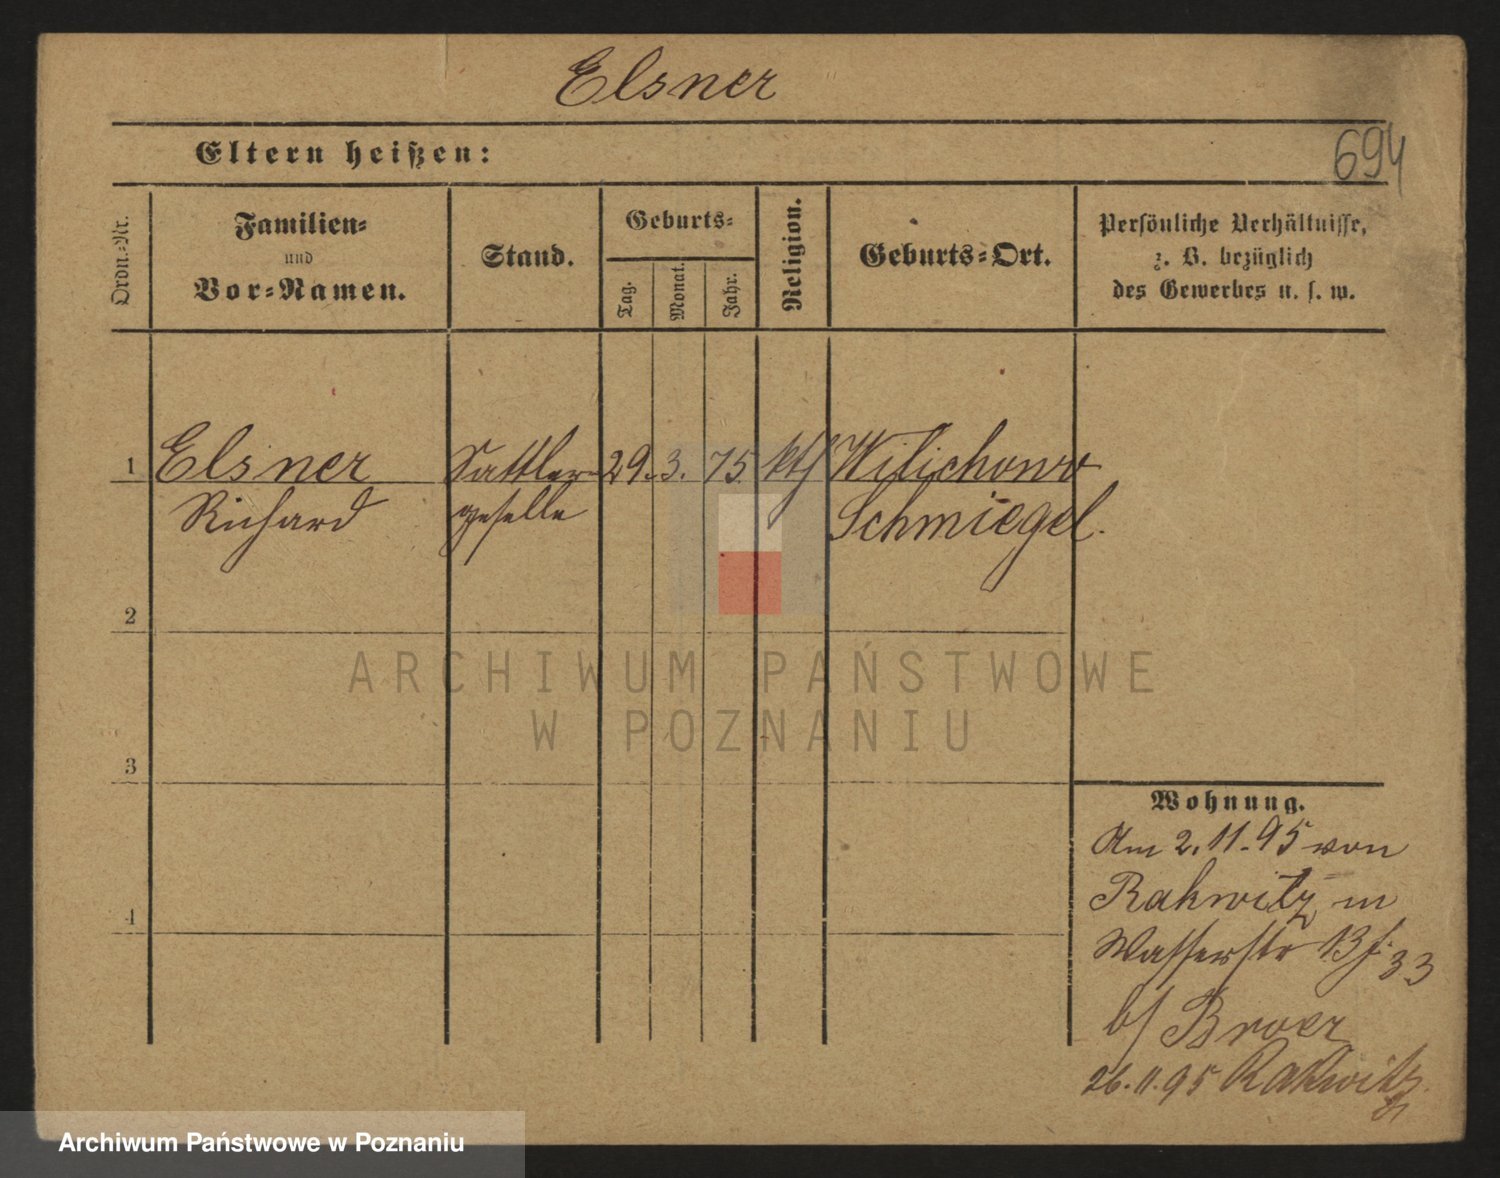 Elsner
Eltern heißen:
694
Ordn.-Nr.
Familien-
und
Vor-Namen.
Stand.
Geburts-
Tag.
Monat.
Jahr.
Religion.
Geburts-Ort.
Persönliche Verhältnisse,
z. B. bezüglich
des Gewerbes u. s. w.
1 Elsner Sattler- 29. 3. 75 kth Wilichowo
Richard geselle Schmiegel.
2
3
4
Wohnung.
Am 2.11.95 von
Rakwitz in
Wasserstr 33
b/ Broer
26.11.95 Rakwitz
ARCHIWUM PAŃSTWOWE
W POZNANIU
Archiwum Państwowe w Poznaniu